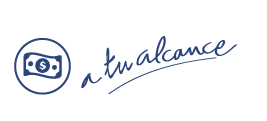 $
a tu alcance